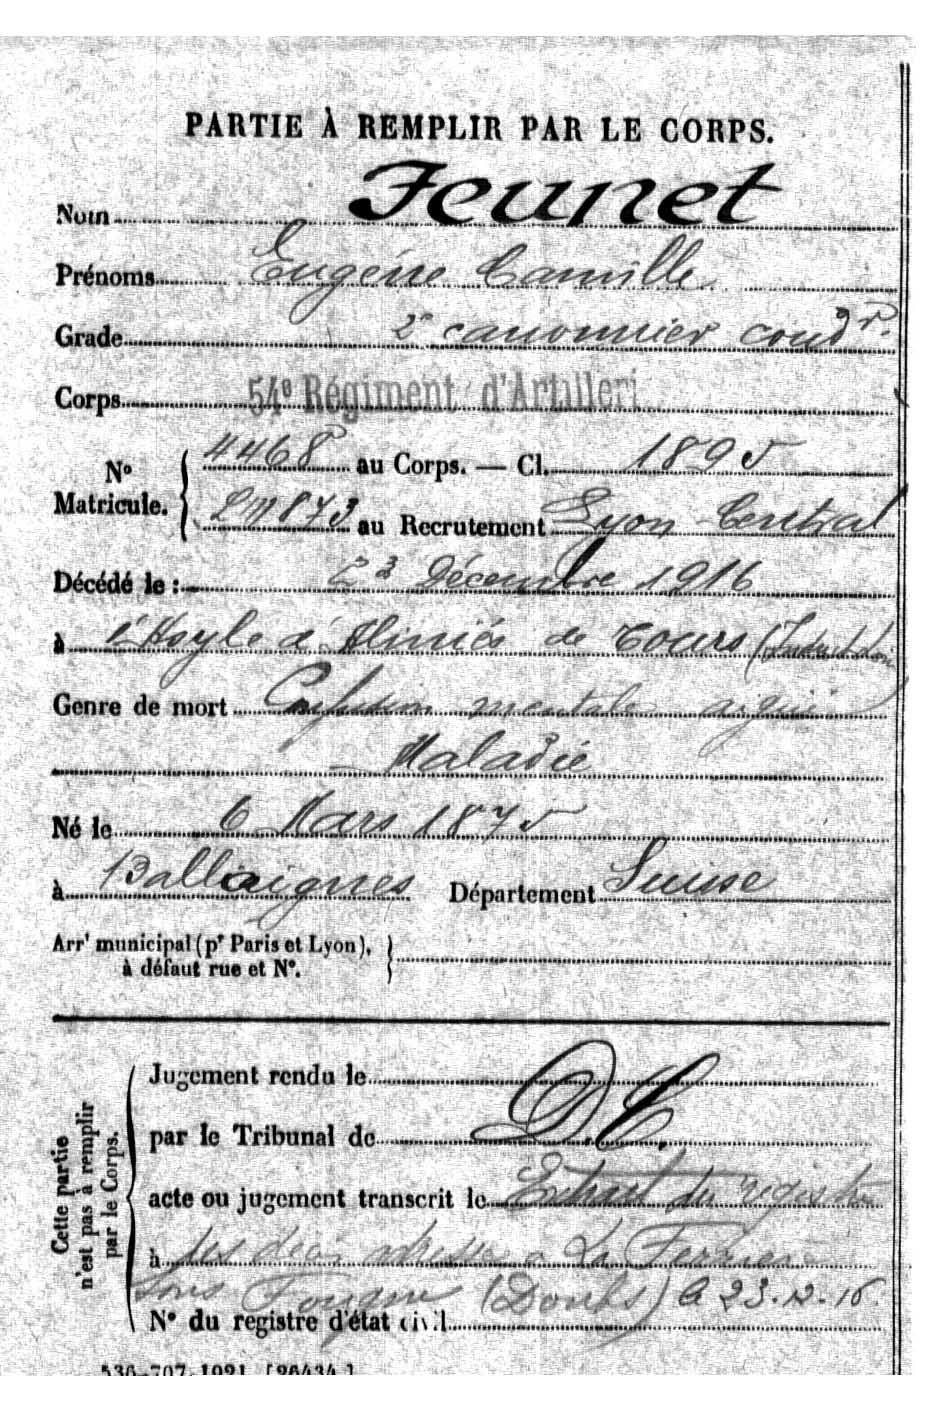 PARTIE À REMPLIR PAR LE CORPS.
Nom Jeunet
Prénoms Eugène Camille
Grade 2e canonnier condr.
Corps 54e Régiment d'Artilleri
No Matricule. { 4468 au Corps. — Cl. 1895
LM 873 au Recrutement Lyon Central
Décédé le : 23 Décembre 1916
à l'Asyle d'Aliniés de Tours (Indre et Loire)
Genre de mort Confusion mentale aiguë
Maladie
Né le 6 Mars 1875
à Ballaigues Département Suisse
Arrt municipal (pr Paris et Lyon), à défaut rue et No. }
Cette partie n'est pas à remplir par le Corps.
Jugement rendu le
par le Tribunal de D.C.
acte ou jugement transcrit le Extrait du registre
à des décès adressé à La Ferrière
sous Jougne (Doubs) le 23.12.16
No du registre d'état civil
536-707-1921. [26434.]